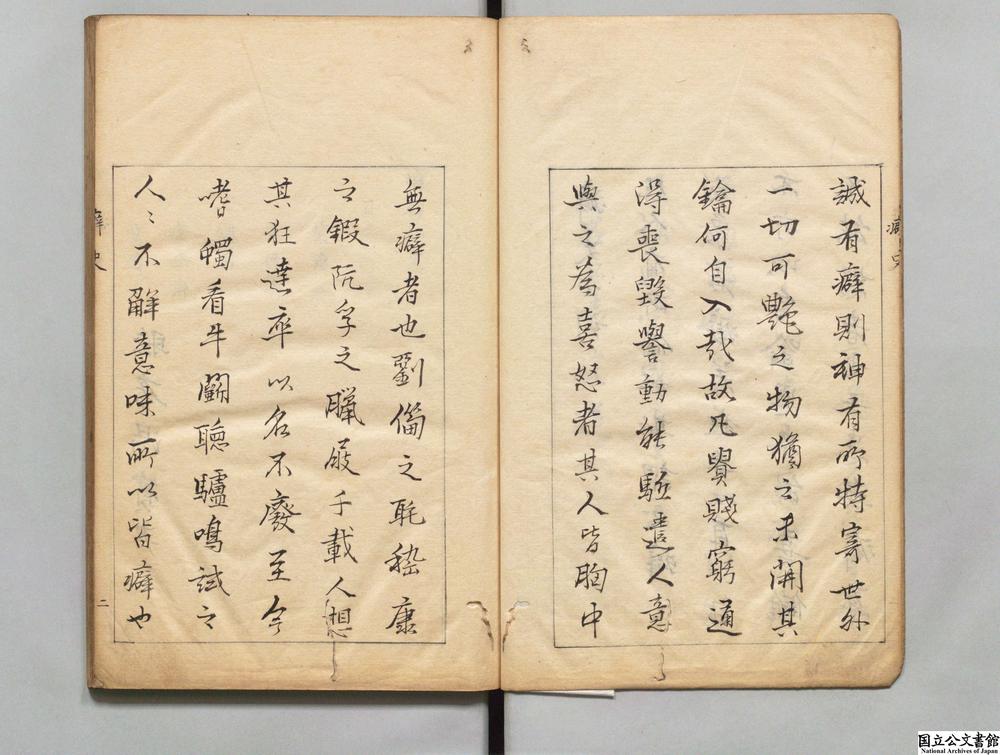 誠有癖則神有所特寄世外
一切可艷之物猶之未開其
鑰何自入哉故凡貴賤窮通
得喪毀譽動能驅遣人意
與之為喜怒者其人皆胸中
癖史
無癖者也劉倫之耽嵇康
之鍛阮孚之臘屐千載人想
其狂達卒以名不廢至今
嗜蠋看牛鬭聽驢鳴試之
人〻不解意味所以皆癖也
癖史
二
国立公文書館
National Archives of Japan